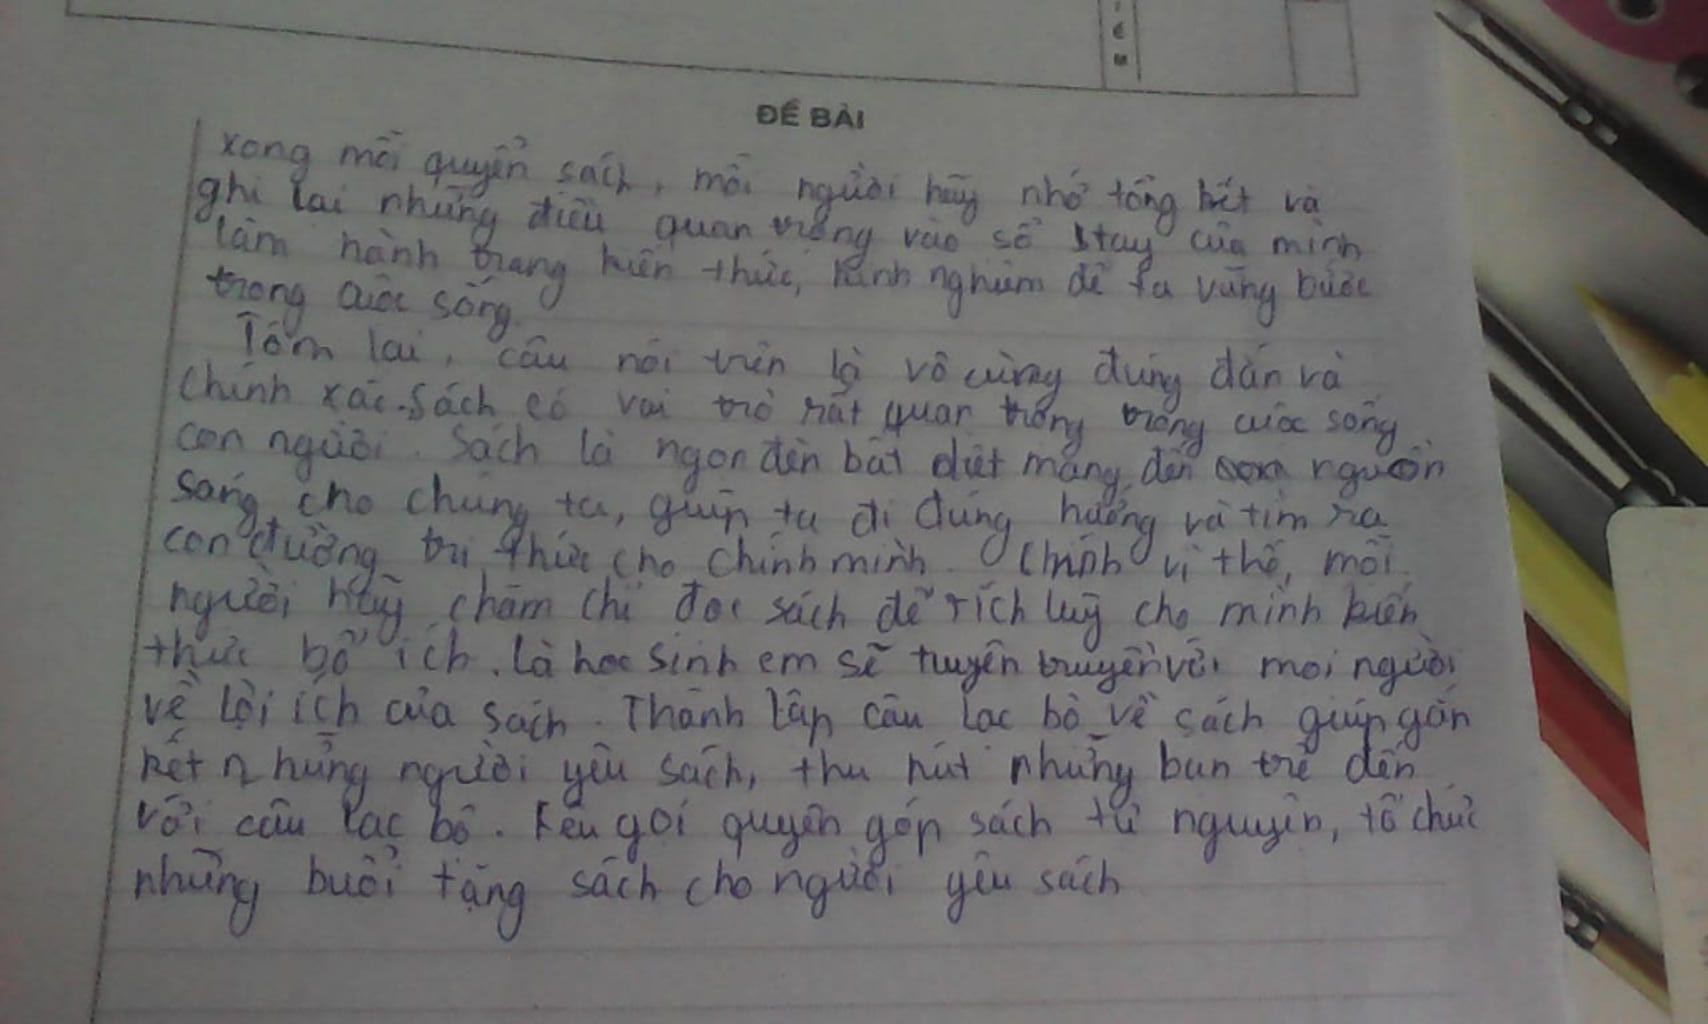 I
Ể
M
ĐỀ BÀI
xong mỗi quyển sách, mỗi người hãy nhớ tổng kết và
ghi lại những điều quan trọng vào sổ tay của mình
làm hành trang kiến thức, kinh nghiệm để ta vững bước
trong cuộc sống.
Tóm lại, câu nói trên là vô cùng đúng đắn và
chính xác. Sách có vai trò rất quan trọng trong cuộc sống
con người. Sách là ngọn đèn bất diệt mang đến nguồn
sáng cho chúng ta, giúp ta đi đúng hướng và tìm ra
con đường tri thức cho chính mình. Chính vì thế, mỗi
người hãy chăm chỉ đọc sách để tích luỹ cho mình kiến
thức bổ ích. Là học sinh em sẽ tuyên truyền với mọi người
về lợi ích của sách. Thành lập câu lạc bộ về sách giúp gắn
kết những người yêu sách, thu hút những bạn trẻ đến
với câu lạc bộ. Kêu gọi quyên góp sách tự nguyện, tổ chức
những buổi tặng sách cho người yêu sách